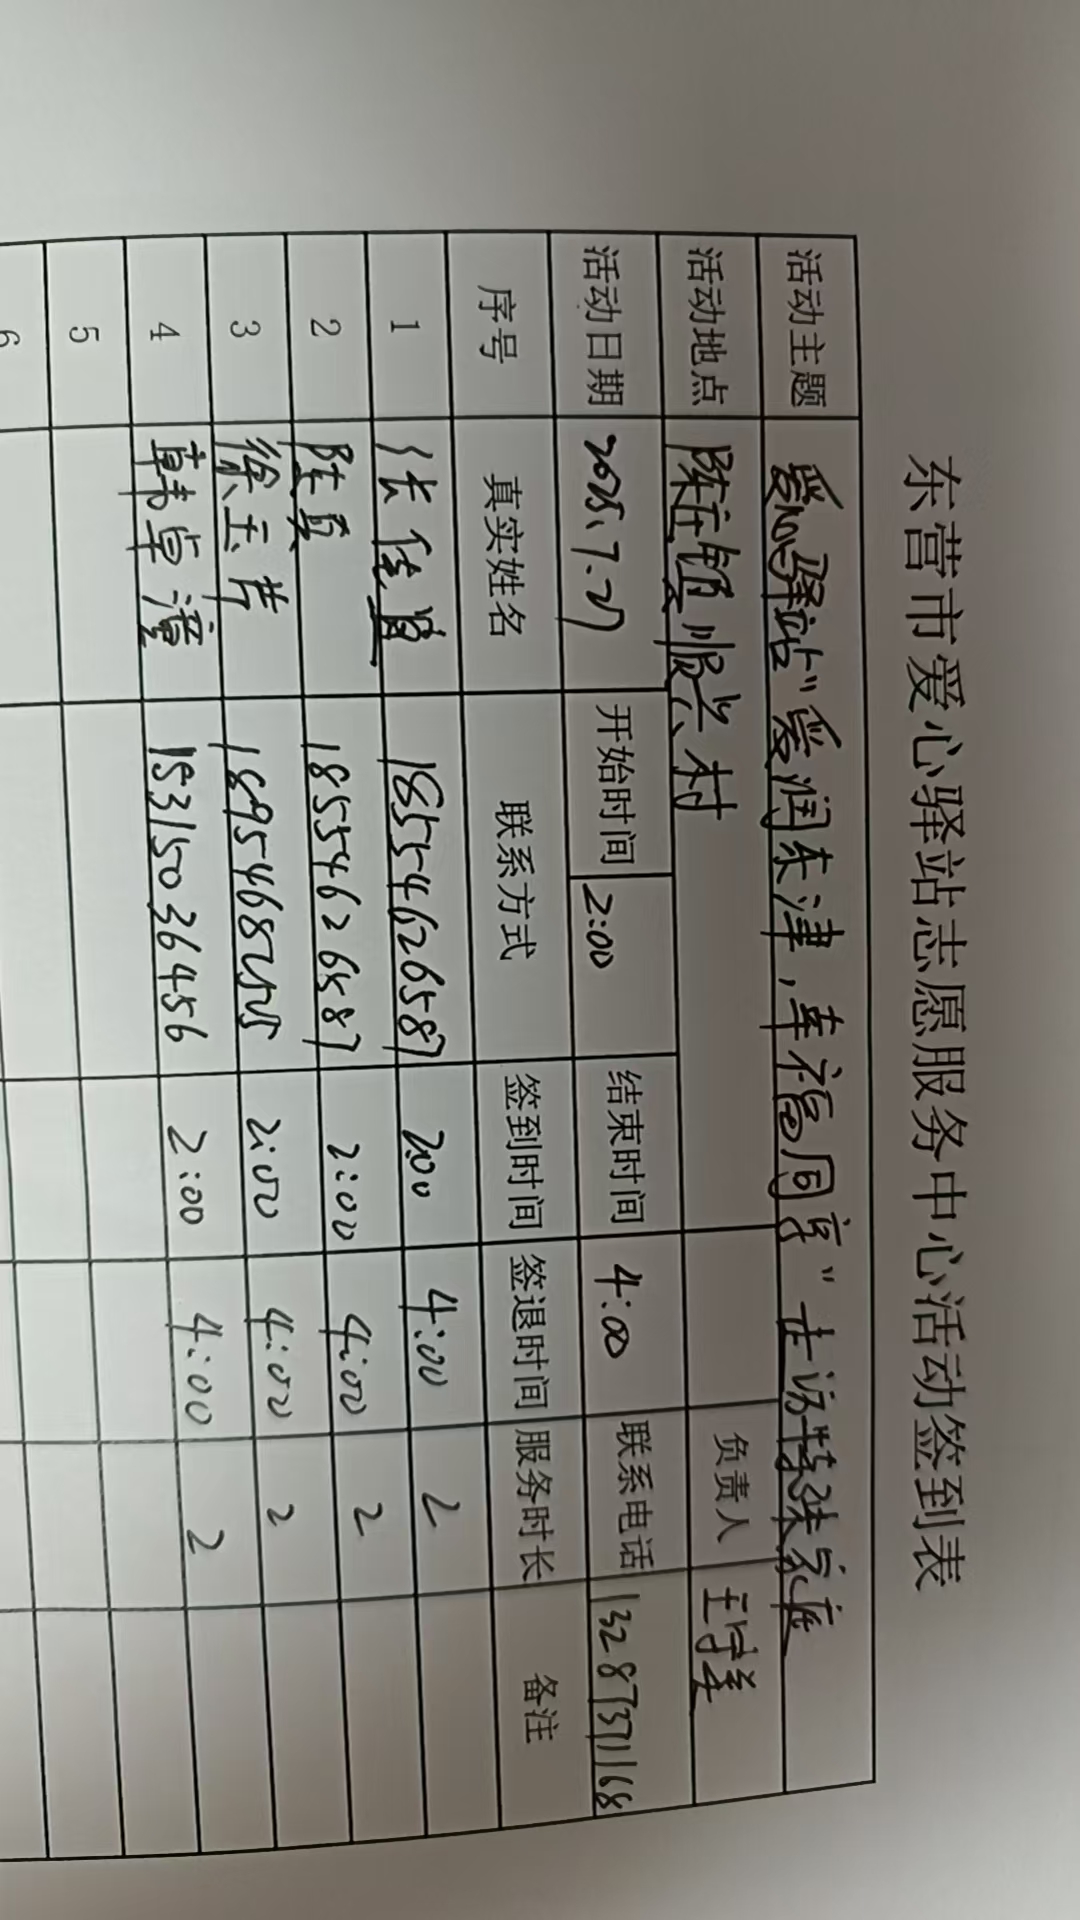 东营市爱心驿站志愿服务中心活动签到表
活动主题 爱心驿站"爱润东津,幸福同享"走访特殊家庭
活动地点 陈庄镇顺兴村 负责人
活动日期 2025.7.27 开始时间 2:00 结束时间 4:00 联系电话 13287371168
序号 真实姓名 联系方式 签到时间 签退时间 服务时长 备注
1 18554626587 2:00 4:00 2
2 陈真 18554626587 2:00 4:00 2
3 徐玉苹 18954682525 2:00 4:00 2
4 韩卓潼 15315036456 2:00 4:00 2
5
6